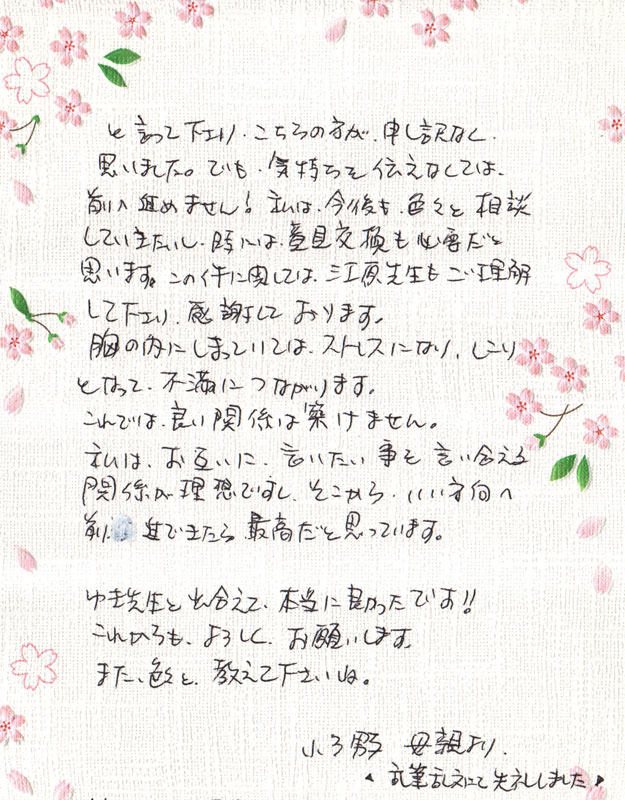 と言って下さり、こちらの方が、申し訳なく、
思いました。でも、気持ちを伝えなくては、
前へ進めません！私は、今後も、色々と相談
していきたいし、時には、意見交換も必要だと
思います。この件に関しては、三江原先生もご理解
して下さり、感謝しております。
胸の内にしまっていては、ストレスになり、しこり
となって、不満につながります。
これでは、良い関係は築けません。
私は、お互いに、言いたい事を言い合える
関係が理想ですし、そこから、いい方向へ
前 進できたら最高だと思っています。
ゆき先生と出会えて、本当に良かったです!!
これからも、よろしく、お願いします。
また、色々と、教えて下さいね。
母親より、
乱筆乱文にて失礼しました